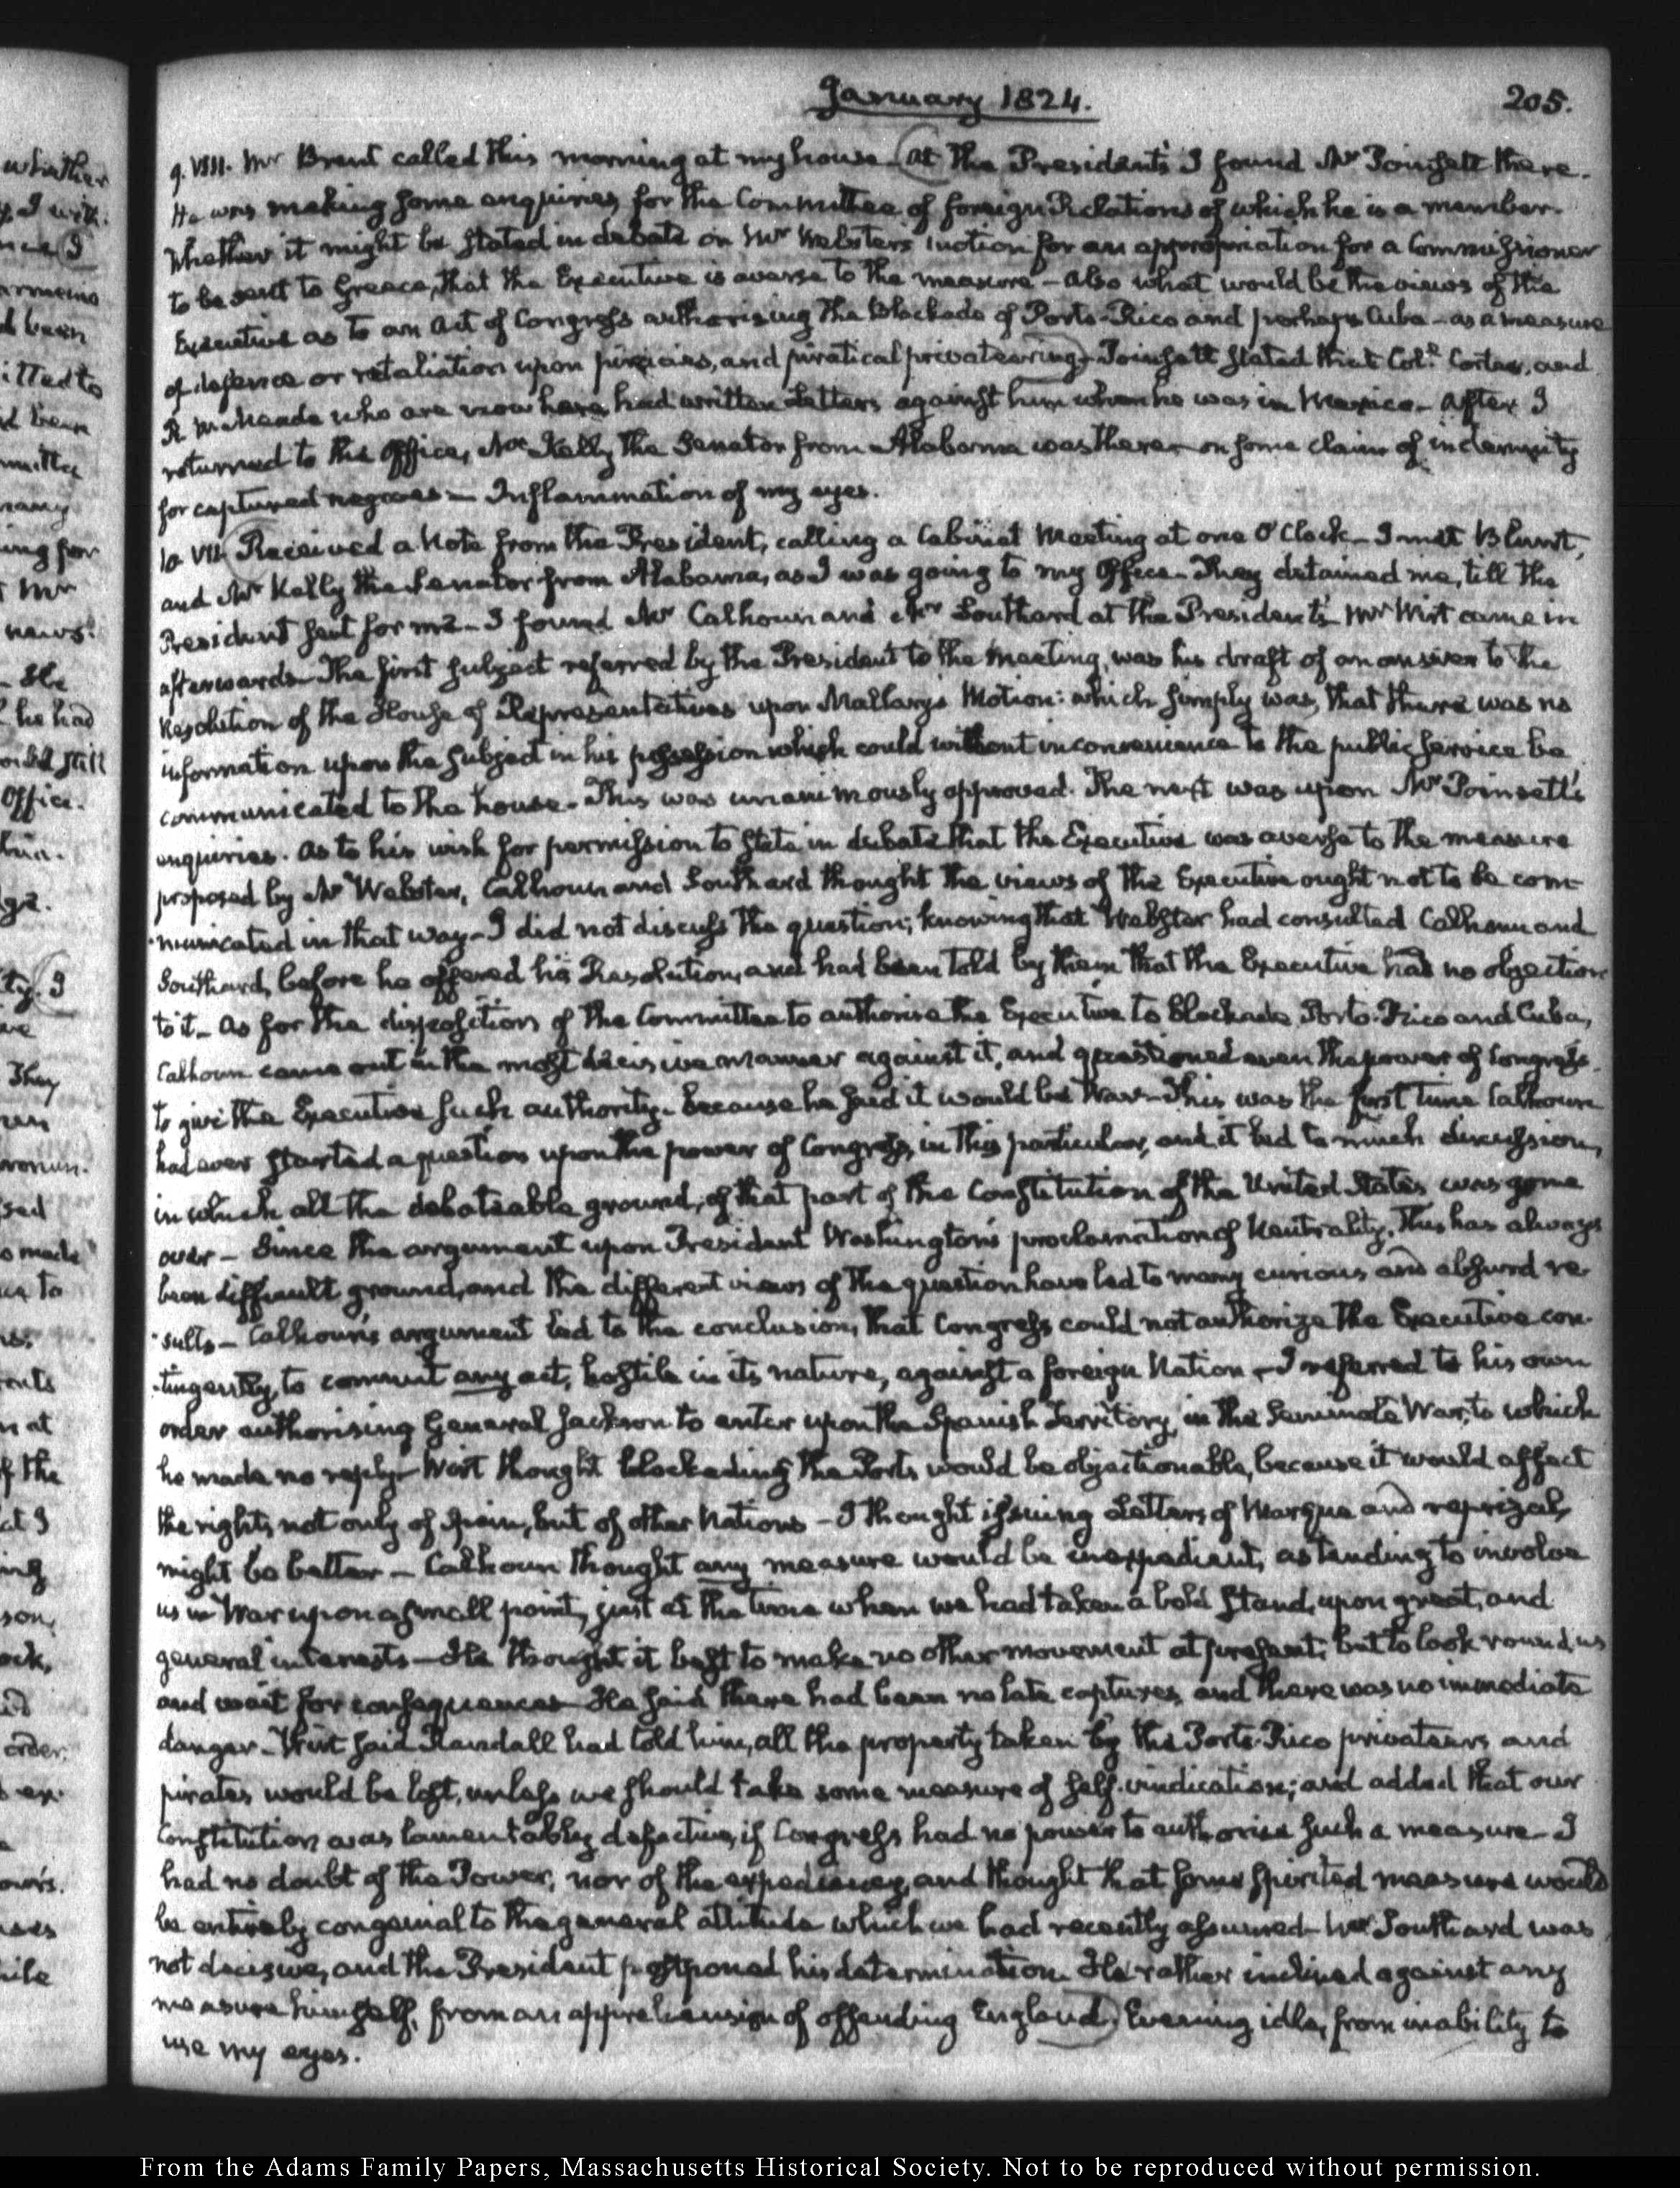 January 1824.
205.
9. VIII. Mr Brent called this morning at my house. (At the President's I found Mr Poinsett there.
He was making some enquiries for the Committee of foreign Relations of which he is a member.
Whether it might be stated in debate on Mr Webster's motion for an appropriation for a Commissioner
to be sent to Greece, that the Executive is averse to the measure — Also what would be the views of the
Executive as to an Act of Congress authorising the blockade of Porto-Rico and perhaps Cuba — as a measure
of defence or retaliation upon piracies, and piratical privateering) — Poinsett stated that Coll. Cortes, and
R. Meade who are now here, had written Letters against him when he was in Mexico — After I
returned to the Office, Mr Kelly the Senator from Alabama was there — on some claim of indemnity
for captured negroes — Inflammation of my eyes.
10 VII. (Received a Note from the President, calling a Cabinet Meeting at one O'Clock — I met Blunt,
and Mr Kelly the Senator from Alabama, as I was going to my Office — They detained me, till the
President sent for me — I found Mr Calhoun and Mr Southard at the President's — Mr Wirt came in
afterwards — The first subject referred by the President to the meeting, was his draft of an answer to the
Resolution of the House of Representatives upon Mallary's Motion: which simply was, that there was no
information upon the subject in his possession which could without inconvenience to the public service be
communicated to the house — This was unanimously approved. The next was upon Mr Poinsett's
enquiries. As to his wish for permission to state in debate that the Executive was averse to the measure
proposed by Mr Webster, Calhoun and Southard thought the views of the Executive ought not to be com-
-municated in that way — I did not discuss the question; knowing that Webster had consulted Calhoun and
Southard, before he offered his Resolution, and had been told by them that the Executive had no objection
to it — As for the disposition of the Committee to authorise the Executive to blockade Porto-Rico and Cuba,
Calhoun came out in the most decisive manner against it, and questioned even the power of Congress
to give the Executive such authority — because he said it would be War — This was the first time Calhoun
had ever started a question upon the power of Congress, in this particular, and it led to much discussion,
in which all the debateable ground, of that part of the Constitution of the United States was gone
over — Since the argument upon President Washington's proclamation of Neutrality. This has always
been difficult ground, and the different views of the question have led to many curious and absurd re-
-sults — Calhoun's argument led to the conclusion, that Congress could not authorize the Executive con-
-tingently, to commit any act, hostile in its nature, against a foreign Nation — I referred to his own
order authorising General Jackson to enter upon the Spanish Territory, in the Seminole War, to which
he made no reply — Wirt thought blockading the Ports would be objectionable, because it would affect
the rights, not only of Spain, but of other Nations — I thought issuing Letters of Marque and reprizal,
might be better — Calhoun thought any measure would be inexpedient, as tending to involve
us in War upon a small point, just at the time when we had taken a bold stand, upon great, and
general interests — He thought it best to make no other movement at present: but to look round us
and wait for consequences — He said there had been no late captures, and there was no immediate
danger — Wirt said Randall had told him, all the property taken by the Porto-Rico privateers and
pirates would be lost, unless we should take some measure of self-vindication; and added that our
Constitution was lamentably defective, if Congress had no power to authorise such a measure — I
had no doubt of the Power, nor of the expediency, and thought that some spirited measure would
be entirely congenial to the general attitude which we had recently assumed — Mr Southard was
not decisive, and the President postponed his determination. He rather inclined against any
measure himself, from an apprehension of offending England). Evening idle, from inability to
use my eyes.
From the Adams Family Papers, Massachusetts Historical Society. Not to be reproduced without permission.